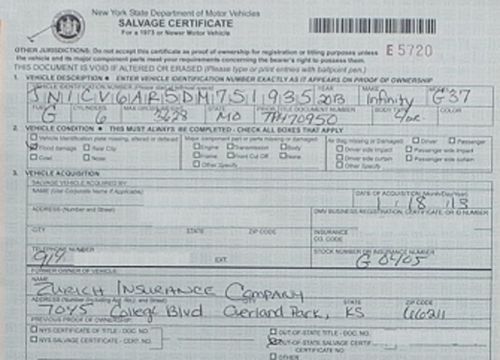 New York State Department of Motor Vehicles
SALVAGE CERTIFICATE
For a 1973 or Newer Motor Vehicle
OTHER JURISDICTIONS: Do not accept this certificate as proof of ownership for registration or titling purposes unless E 5720
the vehicle and its major component parts meet your requirements concerning the bearer's right to possess them.
THIS DOCUMENT IS VOID IF ALTERED OR ERASED (Please type or print entries with ballpoint pen.)
1. VEHICLE DESCRIPTION ENTER VEHICLE IDENTIFICATION NUMBER EXACTLY AS IT APPEARS ON PROOF OF OWNERSHIP
VEHICLE IDENTIFICATION NUMBER YEAR MAKE
JN1CV6AR5DM751935 2013 Infinity G37
FUEL CYLINDERS STATE PRIOR TITLE DOCUMENT NUMBER BODY TYPE COLOR
G 6 3628 MO 4dr
2. VEHICLE CONDITION THIS MUST ALWAYS BE COMPLETED - CHECK ALL BOXES THAT APPLY
Vehicle identification plate missing, altered or defaced Major component part or parts missing or damaged: Air Bag missing or damaged: Driver Passenger
Flood damage Rear Clip Engine Transmission Body Driver side impact Passenger side impact
Cowl None Frame Front Cut Off None Driver side curtain Passenger side curtain
Other Specify Other Specify
3. VEHICLE ACQUISITION
SALVAGE VEHICLE ACQUIRED BY
NAME (Use Corporate Name if Applicable) DATE OF ACQUISITION (Month/Day/Year)
1 18 13
ADDRESS (Number and Street) DMV BUSINESS REGISTRATION, CERTIFICATE OR ID NUMBER
CITY STATE ZIP CODE INSURANCE
CO. CODE
TELEPHONE NUMBER STOCK NUMBER OR INSURANCE NUMBER
914 EXT. G 0405
FORMER OWNER OF VEHICLE
NAME
ZURICH INSURANCE COMPANY
ADDRESS (Number and Street) CITY STATE ZIP CODE
7045 College Blvd Overland Park, KS 66211
PREVIOUS PROOF OF OWNERSHIP
NYS CERTIFICATE OF TITLE - DOC. NO. OUT-OF-STATE TITLE - DOC. NO.
NYS SALVAGE CERTIFICATE - CERT. NO. OUT-OF-STATE SALVAGE
CERTIFICATE NO.
OTHER